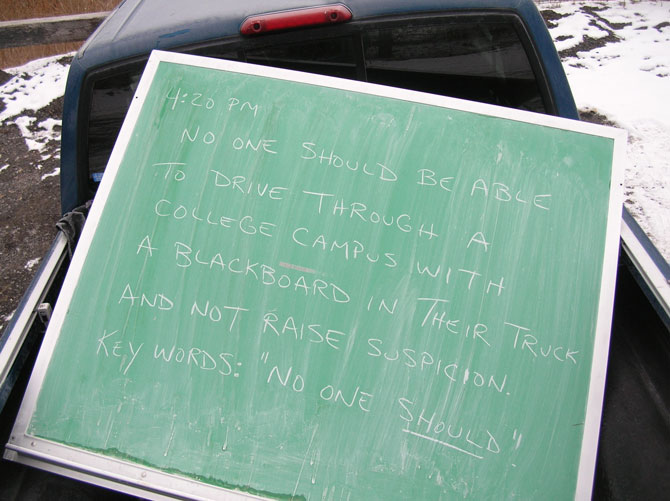 4:20 PM
NO ONE SHOULD BE ABLE
TO DRIVE THROUGH A
COLLEGE CAMPUS WITH
A BLACKBOARD IN THEIR TRUCK
AND NOT RAISE SUSPICION.
KEY WORDS: "NO ONE SHOULD"